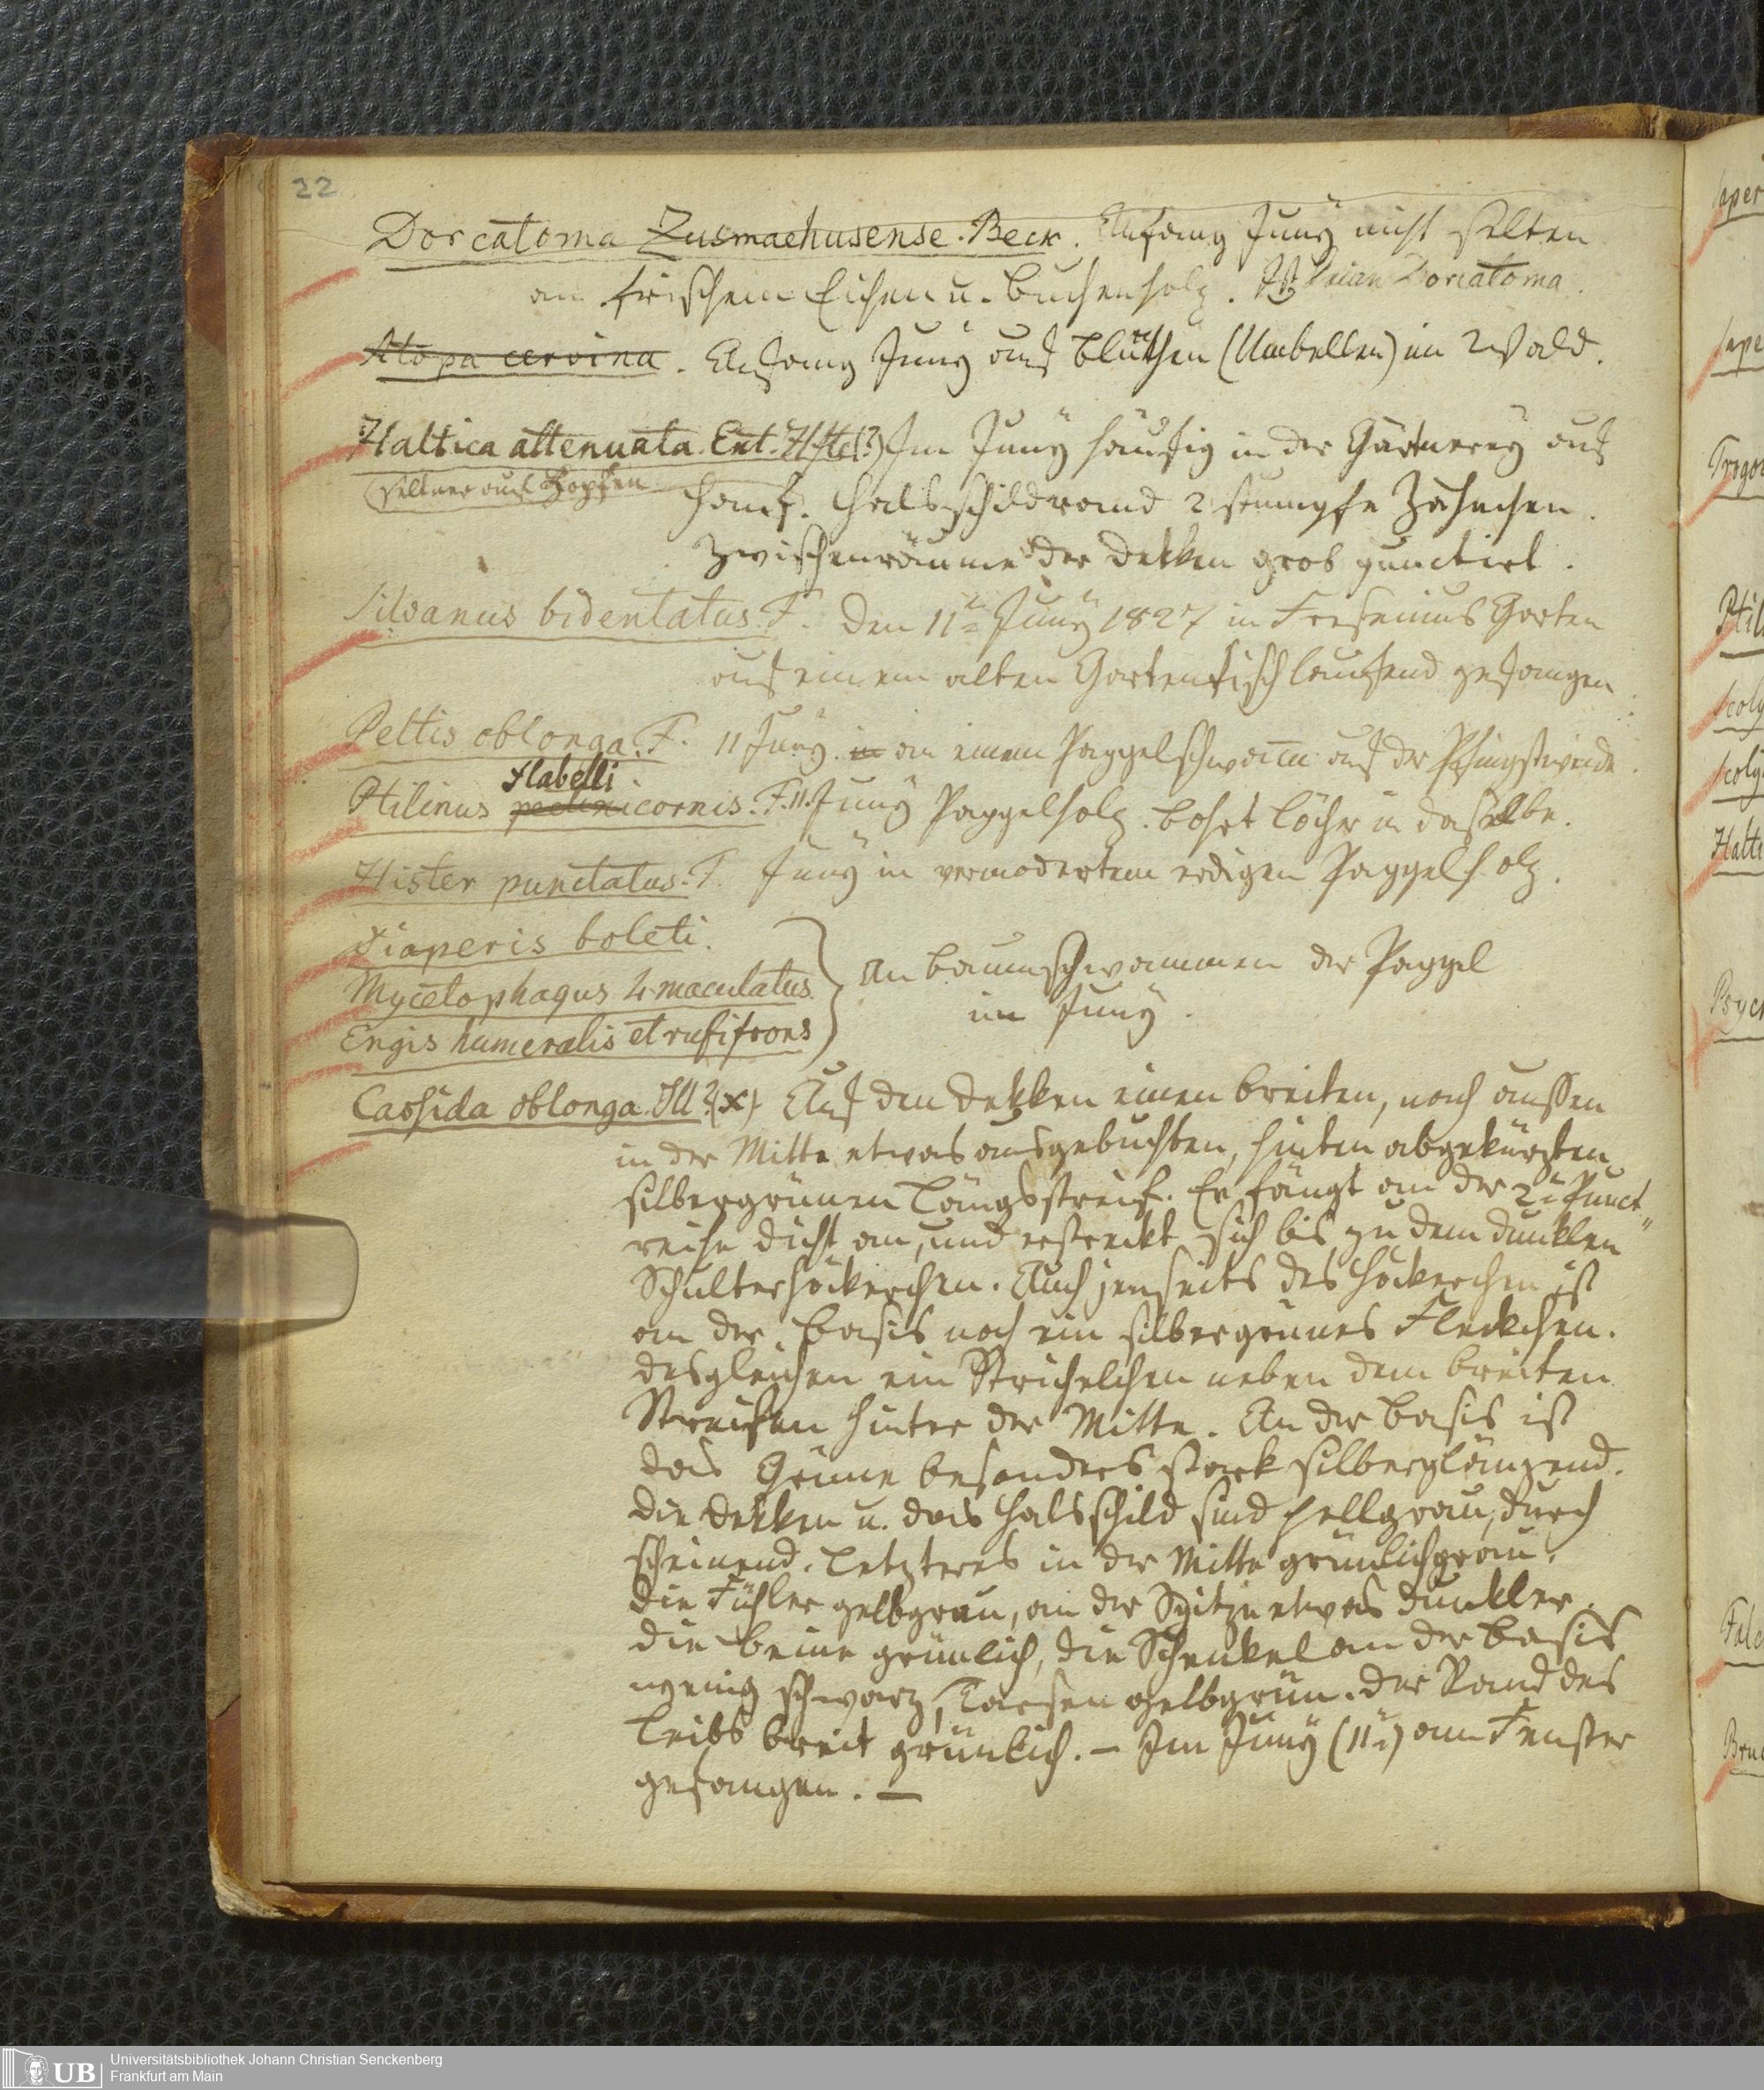 22
Dorcatoma Zusmaehusense. Beck. Anfang Juny nicht selten
an frischem Eichen u. Buchenholz. Ist Dorcatoma.
Atopa cervina. Anfang Juny auf Blüthen (Umbellen) im Wald.
Haltica attenuata. Ent. Hfte(?) Im Juny häufig in der Gärtnerey auf
(seltner auf Hopfen
Hanf. Halsschildrand 2 stumpfe Zähnchen.
Zwischenräume der Dekken grob punctirt.
Silvanus bidentatus. F. Den 11n Juny 1827 in Fresenius Garten
auf einem alten Gartentisch laufend gefangen
Peltis oblonga. F. 11 Juny. in an einem Pappelschwam̄ auf der Pfingstweide.
flabelli
Ptilinus pectinicornis. F. 11. Juny Pappelholz. Bohrt Löcher in dasselbe.
Hister punctatus. F. Juny in vermodertem erdigen Pappelholz.
Diaperis boleti.
Mycetophagus 4-maculatus.
Engis humeralis et rufifrons
An Baumschwammen der Pappel
im Juny.
Cassida oblonga. Ill?(x) Auf den Dekken einen breiten, nach aussen
in der Mitte etwas ausgebuchten, hinten abgekürzten
silbergrünen Längsstreif. Er fängt an der 2n Punct„
reihe dicht an, und erstreckt sich bis zu dem dunklen
Schulterhöckerchen. Auch jenseits des Höckerchen ist
an der Basis noch ein silbergrünes Fleckchen.
desgleichen ein Strichelchen neben dem breiten
Streifen hinter der Mitte. An der Basis ist
das Grüne besonders stark silberglänzend.
Die Dekken u. das Halsschild sind hellgrau, durch
scheinend. Letzteres in der Mitte grünlichgrau.
Die Fühler gelbgrau, an der Spitze etwas dunkler.
Die Beine grünlich, die Schenkel an der Basis
wenig schwarz, Tarsen gelbgrün. Der Rand des
Leibs breit grünlich. – Im Juny (11n) am Fenster
gefangen. –
UB
Universitätsbibliothek Johann Christian Senckenberg
Frankfurt am Main